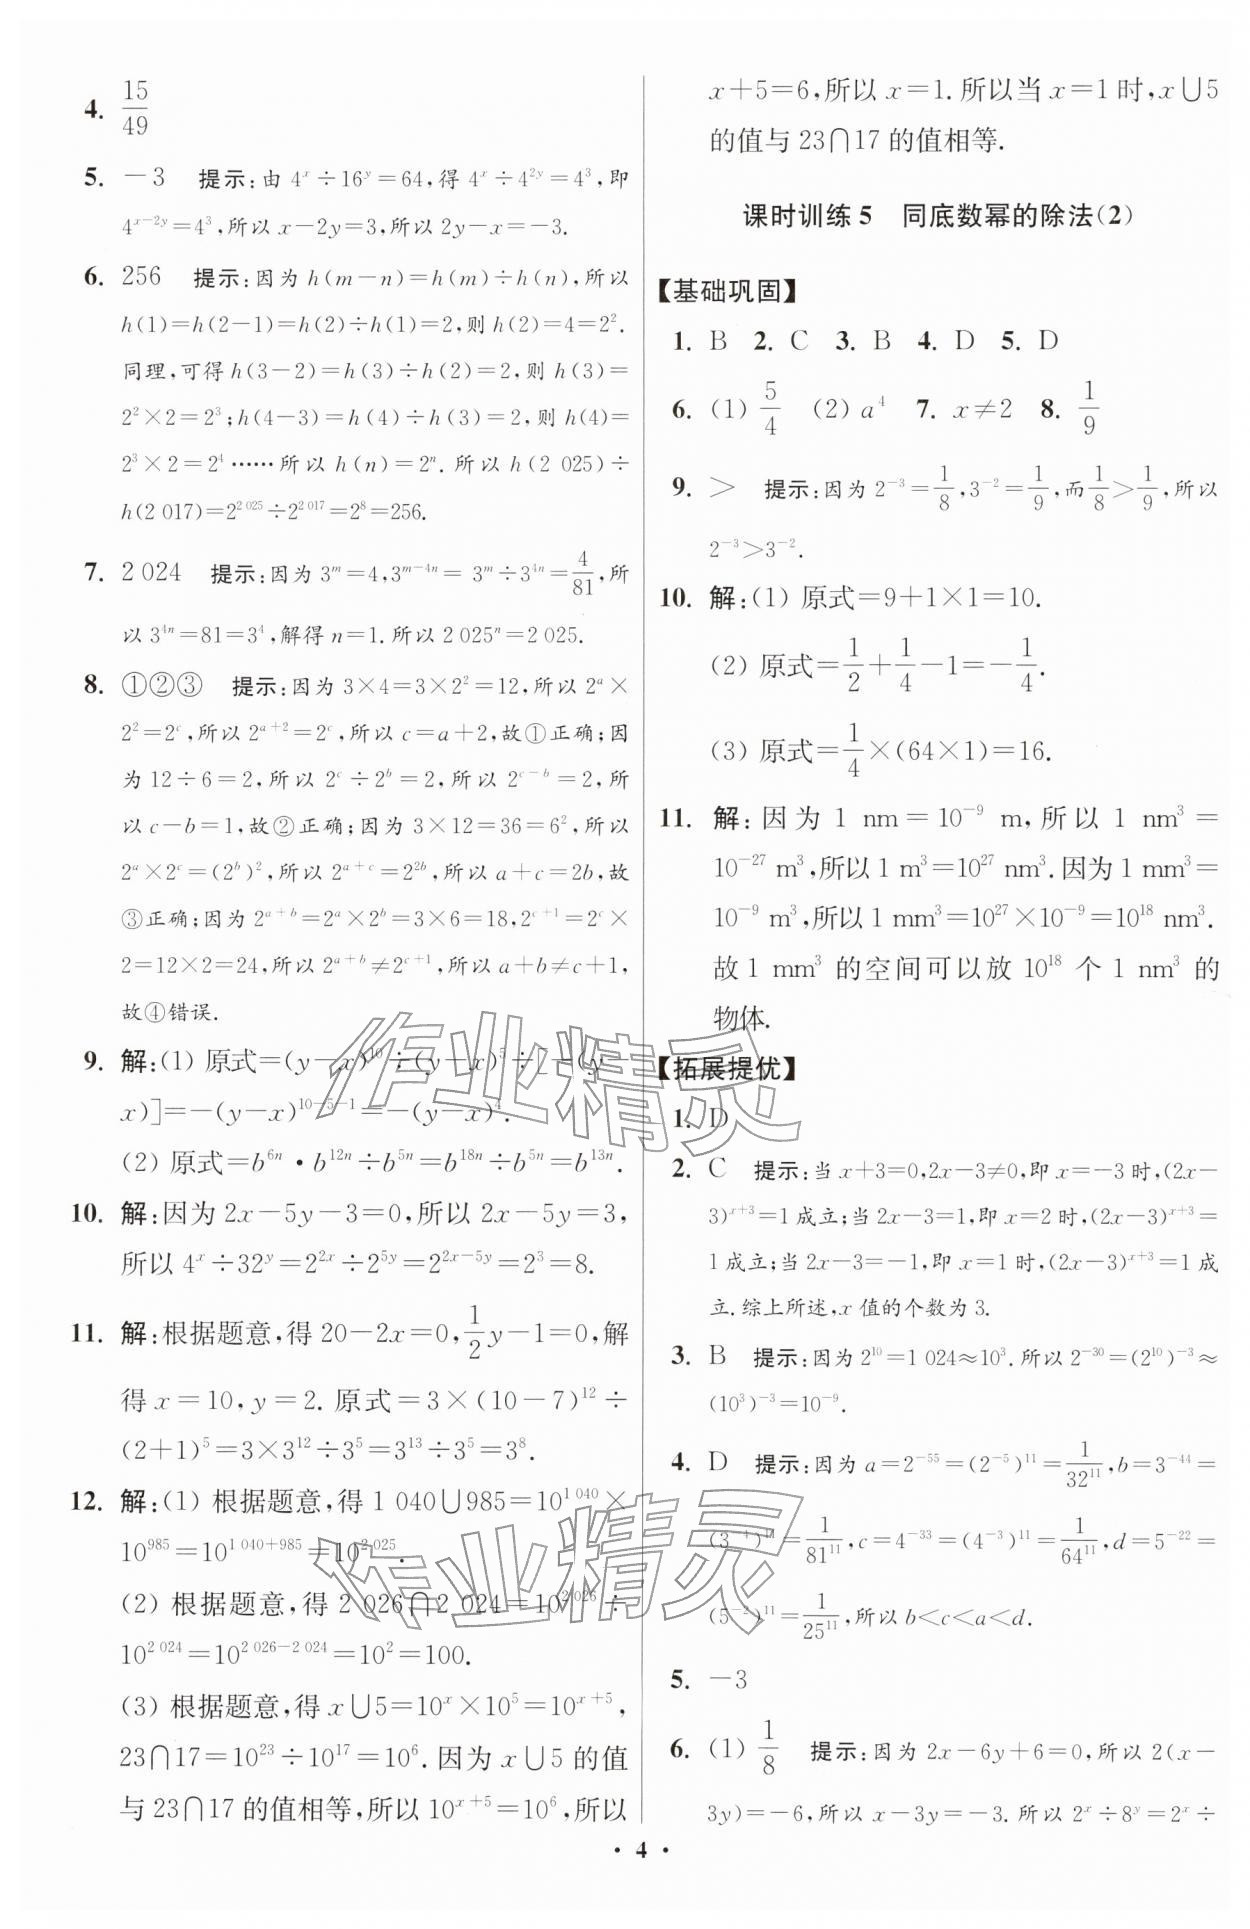 4. 15/49
5. －3　提示:由 4^x÷16^y＝64,得 4^x÷4^{2y}＝4^3,即
4^{x－2y}＝4^3,所以 x－2y＝3,所以 2y－x＝－3.
6. 256　提示:因为 h(m－n)＝h(m)÷h(n),所以
h(1)＝h(2－1)＝h(2)÷h(1)＝2,则 h(2)＝4＝2^2.
同理,可得 h(3－2)＝h(3)÷h(2)＝2,则 h(3)＝
2^2×2＝2^3;h(4－3)＝h(4)÷h(3)＝2,则 h(4)＝
2^3×2＝2^4……所以 h(n)＝2^n. 所以 h(2 025)÷
h(2 017)＝2^{2 025}÷2^{2 017}＝2^8＝256.
7. 2 024　提示:因为 3^m＝4,3^{m－4n}＝3^m÷3^{4n}＝4/81,所
以 3^{4n}＝81＝3^4,解得 n＝1.所以 2 025^n＝2 025.
8. ①②③　提示:因为 3×4＝3×2^2＝12,所以 2^a×
2^2＝2^c,所以 2^{a＋2}＝2^c,所以 c＝a＋2,故①正确;因
为 12÷6＝2,所以 2^c÷2^b＝2,所以 2^{c－b}＝2,所
以 c－b＝1,故②正确;因为 3×12＝36＝6^2,所以
2^a×2^c＝(2^b)^2,所以 2^{a＋c}＝2^{2b},所以 a＋c＝2b,故
③正确;因为 2^{a＋b}＝2^a×2^b＝3×6＝18,2^{c＋1}＝2^c×
2＝12×2＝24,所以 2^{a＋b}≠2^{c＋1},所以 a＋b≠c＋1,
故④错误.
9. 解:(1) 原式＝(y－x)^{10}÷(y－x)^5÷[－(y－
x)]＝－(y－x)^{10－5－1}＝－(y－x)^4.
(2) 原式＝b^{6n}•b^{12n}÷b^{5n}＝b^{18n}÷b^{5n}＝b^{13n}.
10. 解:因为 2x－5y－3＝0,所以 2x－5y＝3,
所以 4^x÷32^y＝2^{2x}÷2^{5y}＝2^{2x－5y}＝2^3＝8.
11. 解:根据题意,得 20－2x＝0,1/2 y－1＝0,解
得 x＝10,y＝2. 原式＝3×(10－7)^{12}÷
(2＋1)^5＝3×3^{12}÷3^5＝3^{13}÷3^5＝3^8.
12. 解:(1) 根据题意,得 1 040∪985＝10^{1 040}×
10^{985}＝10^{1 040＋985}＝10^{2 025}.
(2) 根据题意,得 2 026∩2 024＝10^{2 026}÷
10^{2 024}＝10^{2 026－2 024}＝10^2＝100.
(3) 根据题意,得 x∪5＝10^x×10^5＝10^{x＋5},
23∩17＝10^{23}÷10^{17}＝10^6.因为 x∪5 的值
与 23∩17 的值相等,所以 10^{x＋5}＝10^6,所以
x＋5＝6,所以 x＝1.所以当 x＝1 时,x∪5
的值与 23∩17 的值相等.
课时训练 5　同底数幂的除法(2)
【基础巩固】
1. B　2. C　3. B　4. D　5. D
6. (1) 5/4　(2) a^4　7. x≠2　8. 1/9
9. ＞　提示:因为 2^{－3}＝1/8,3^{－2}＝1/9,而1/8＞1/9,所以
2^{－3}＞3^{－2}.
10. 解:(1) 原式＝9＋1×1＝10.
(2) 原式＝1/2＋1/4－1＝－1/4.
(3) 原式＝1/4×(64×1)＝16.
11. 解:因为 1 nm＝10^{－9} m,所以 1 nm^3＝
10^{－27} m^3,所以 1 m^3＝10^{27} nm^3.因为 1 mm^3＝
10^{－9} m^3,所以 1 mm^3＝10^{27}×10^{－9}＝10^{18} nm^3.
故 1 mm^3 的空间可以放 10^{18} 个 1 nm^3 的
物体.
【拓展提优】
1. D
2. C　提示:当 x＋3＝0,2x－3≠0,即 x＝－3 时,(2x－
3)^{x＋3}＝1 成立;当 2x－3＝1,即 x＝2 时,(2x－3)^{x＋3}＝
1 成立;当 2x－3＝－1,即 x＝1 时,(2x－3)^{x＋3}＝1 成
立.综上所述,x 值的个数为 3.
3. B　提示:因为 2^{10}＝1 024≈10^3.所以 2^{－30}＝(2^{10})^{－3}≈
(10^3)^{－3}＝10^{－9}.
4. D　提示:因为 a＝2^{－55}＝(2^{－5})^{11}＝1/32^{11},b＝3^{－44}＝
(3^{－4})^{11}＝1/81^{11},c＝4^{－33}＝(4^{－3})^{11}＝1/64^{11},d＝5^{－22}＝
(5^{－2})^{11}＝1/25^{11},所以 b＜c＜a＜d.
5. －3
6. (1) 1/8　提示:因为 2x－6y＋6＝0,所以 2(x－
3y)＝－6,所以 x－3y＝－3. 所以 2^x÷8^y＝2^x÷
• 4 •
作业精灵
作业精灵